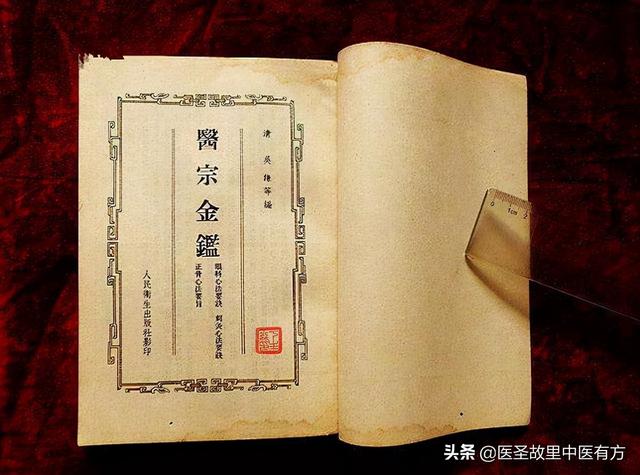 清 吳 謙等編
醫宗金鑑
眼科心法要訣 刺灸心法要訣
正骨心法要旨
人民衛生出版社影印
0 1cm 2
头条 @医圣故里中医有方